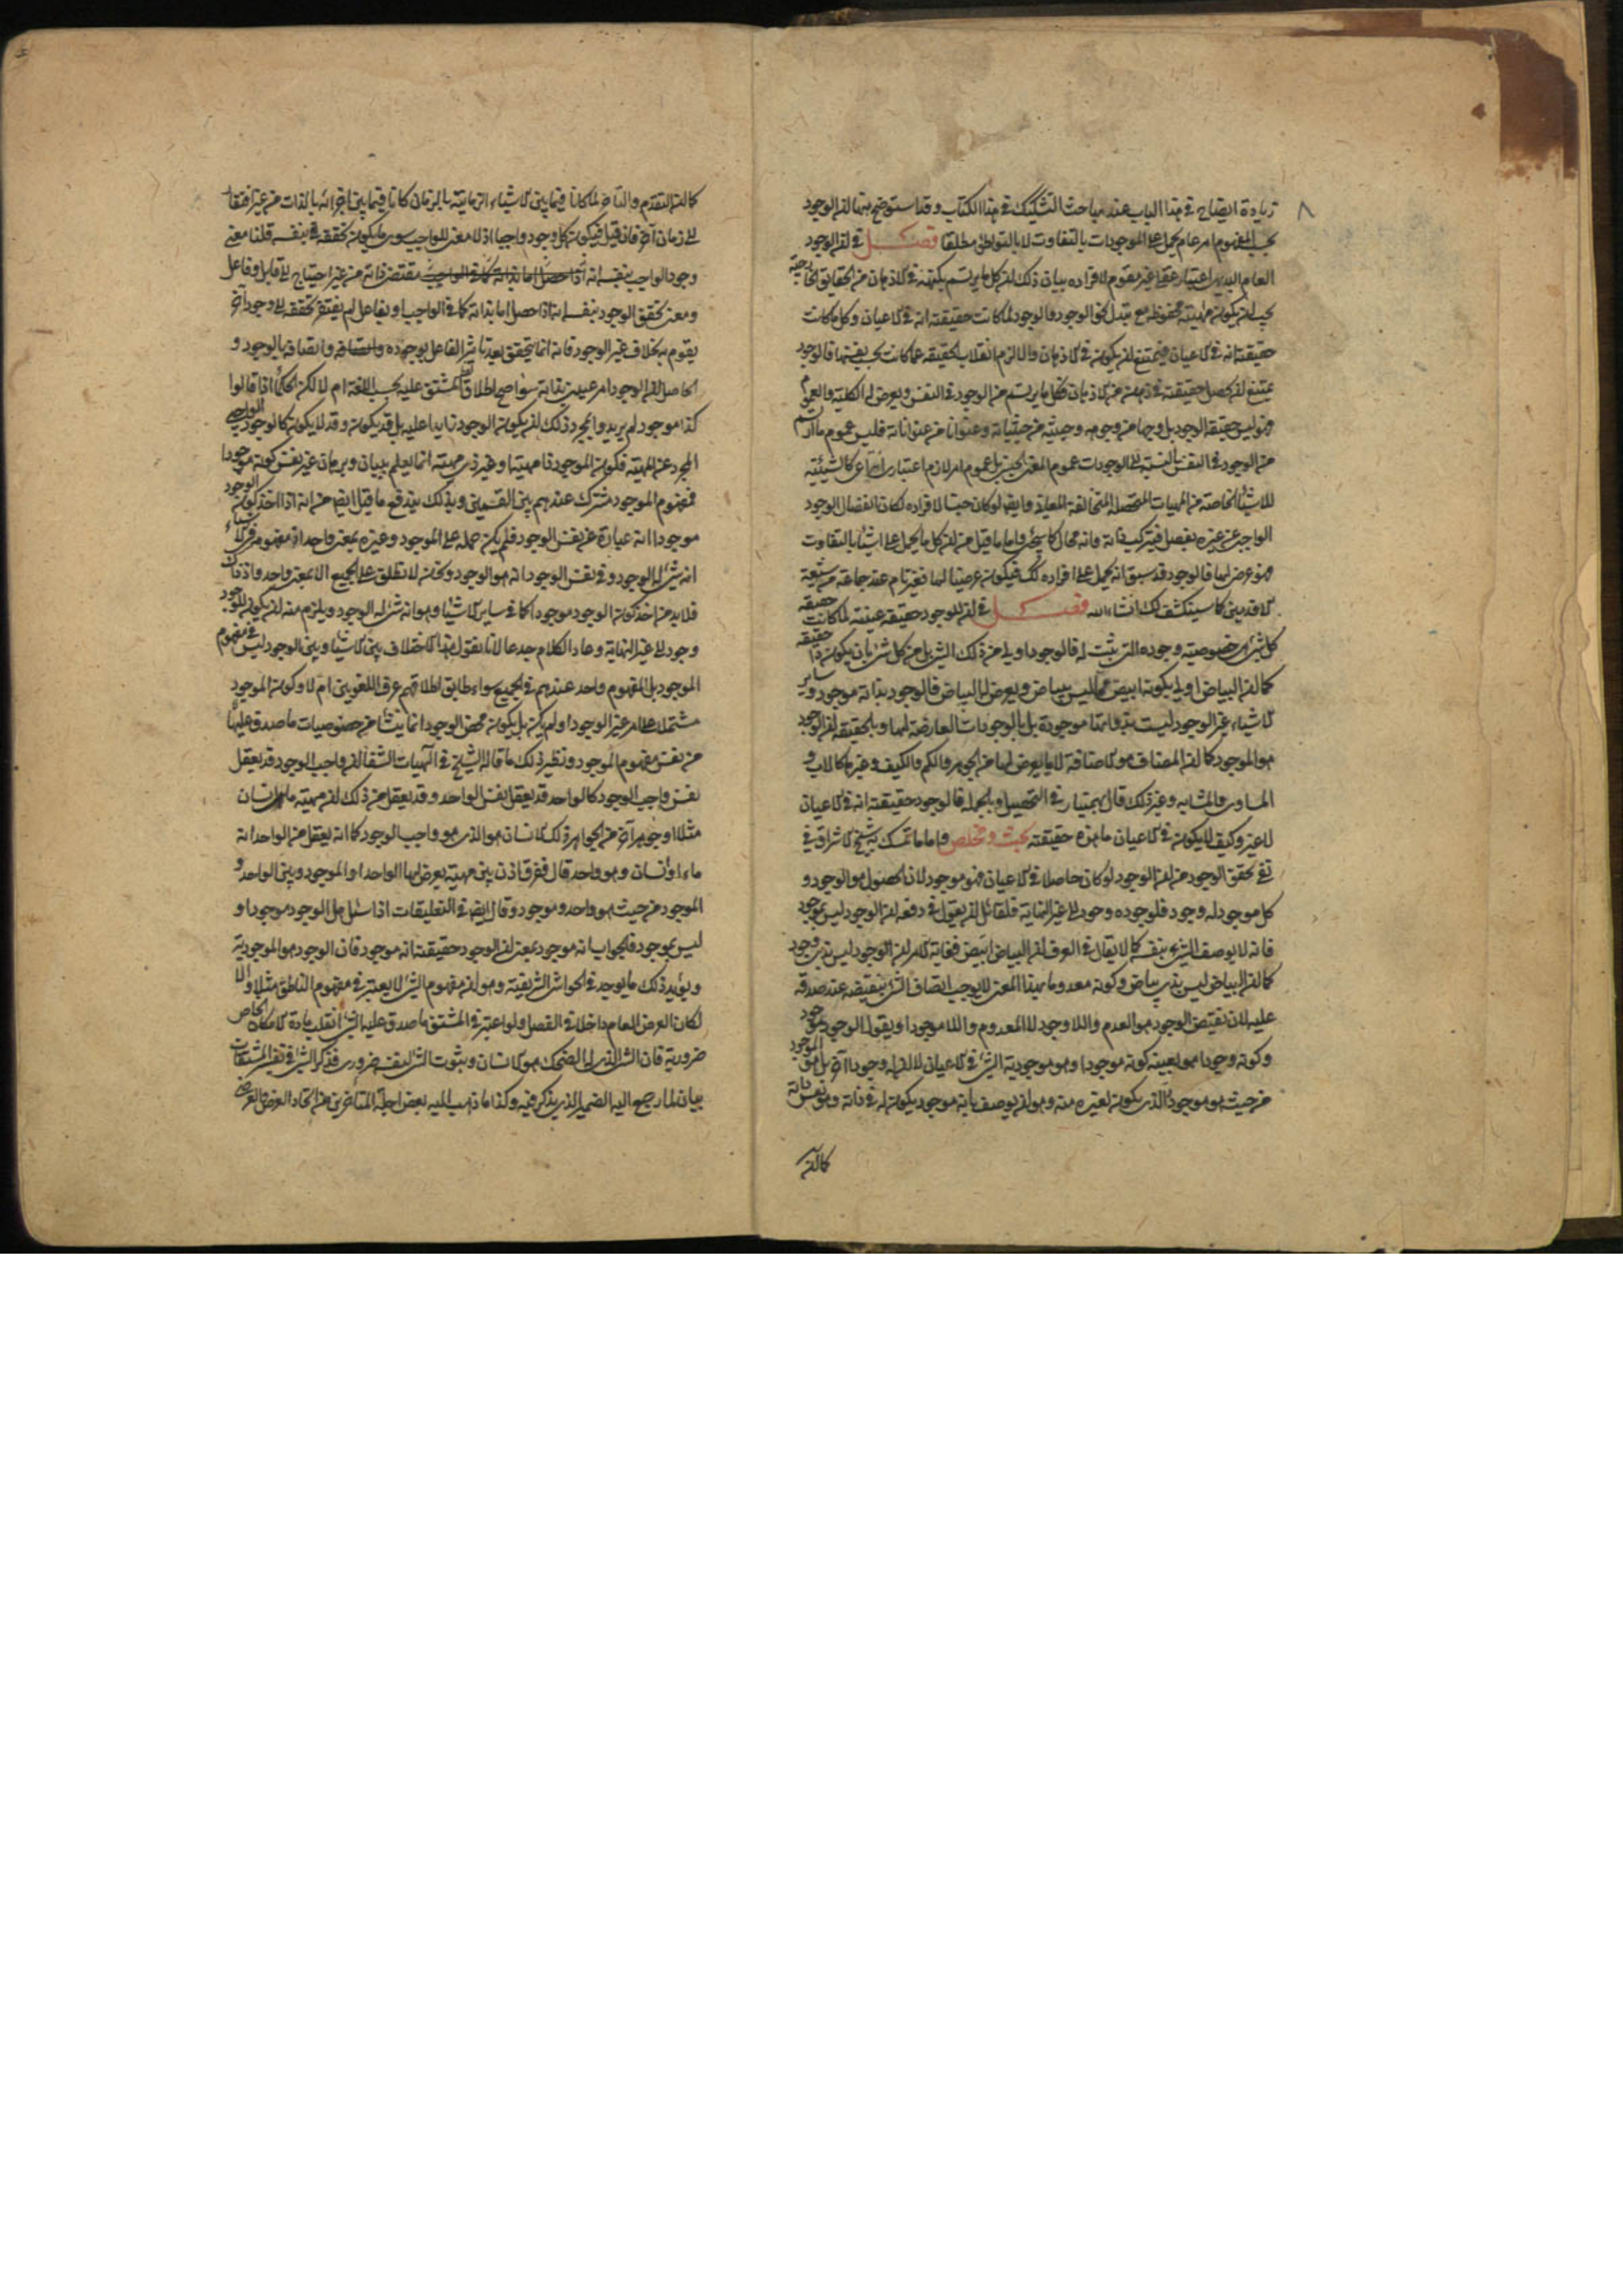 زيادة ايضاح في هذا الباب عند مباحث التشكيك في هذا الكتاب وقد استوضح هنا ان الوجود
بحسب المفهوم امر عام يحمل على الموجودات بالتفاوت لا بالتواطؤ مطلقا فصل في ان الوجود
العام البديهي اعتبار عقلي غير مقوم لافراده بيان ذلك ان كل ما يرتسم بكنهه في الاذهان من الحقايق الخارجية
يجب ان يكون مهيته محفوظة مع تبدل نحو الوجود والوجود لما كانت حقيقته انه في الاعيان وكل ما كانت
حقيقته انه في الاعيان فيمتنع ان يكون في الاذهان والا لزم انقلاب الحقيقة عما كانت بحسب نفسها فالوجود
يمتنع ان يحصل حقيقته في ذهن من الاذهان فكل ما يرتسم من الوجود في النفس ويعرض له الكلية والعموم
فهو ليس حقيقة الوجود بل وجها من وجوهه وحيثية من حيثياته وعنوانا من عنواناته فليس عموم ما ارتسم
من الوجود في النفس بالنسبة الى الوجودات عموم المعنى الجنسي بل عموم امر لازم اعتباري انتزاعي كالشيئية
للاشياء الخاصة من المهيات المتحصلة المتخالفة المعاني وايضا لو كان جنسا لافراده لكان انفصال الوجود
الواجبي عن غيره بفصل فيتركب ذاته وانه محال كما سيجئ واما ما قيل من ان كل ما يحمل على اشياء بالتفاوت
فهو عرضي لها فالوجود قد سبق انه يحمل على افراده كك فيكون عرضيا لها فغير تام عند جماعة من شيعة
الاقدمين كما سينكشف لك انشاء الله فصل في ان للوجود حقيقة عينية لما كانت حقيقة
كل شئ هي خصوصية وجوده التي يثبت له فالوجود اولى من ذلك الشئ بل من كل شئ بان يكون ذا حقيقة
كما ان البياض اولى بكونه ابيض مما ليس ببياض ويعرض له البياض فالوجود بذاته موجود وساير
الاشياء غير الوجود ليست بذواتها موجودة بل بالوجودات العارضة لها وبالحقيقة ان الوجود
هو الموجود كما ان المضاف هو الاضافة لا ما يعرض لها من الجوهر والكم والكيف وغيرها كالاب و
المساوي والمشابه وغير ذلك قال بهمنيار في التحصيل وبالجملة فالوجود حقيقته انه في الاعيان
لا غير وكيف لا يكون في الاعيان ما هذه حقيقته بحث ومخلص واما ما تمسك به شيخ الاشراق في
نفي تحقق الوجود من ان الوجود لو كان حاصلا في الاعيان فهو موجود لان الحصول هو الوجود و
كل موجود له وجود فلوجوده وجود الى غير النهاية فلقائل ان يقول في دفعه ان الوجود ليس بموجود
فانه لا يوصف الشئ بنفسه كما لا يقال في العرف ان البياض ابيض فغاية الامر ان الوجود ليس بذي وجود
كما ان البياض ليس بذي بياض وكونه معدوما بهذا المعنى لا يوجب اتصاف الشئ بنقيضه عند صدقه
عليه لان نقيض الوجود هو العدم واللاوجود لا المعدوم واللاموجود او يقول الوجود موجود
وكونه وجودا هو بعينه كونه موجودا وهو موجودية الشئ في الاعيان لا ان له وجودا آخر بل هو الموجود
من حيث هو موجود والذي يكون لغيره منه وهو ان يوصف بانه موجود يكون له في ذاته وهو نفس ذاته
كما ان
كما ان التقدم والتاخر لما كانا فيما بين الاشياء الزمانية بالزمان كانا فيما بين اجزائه بالذات من غير افتقار
الى زمان آخر فان قيل فيكون كل وجود واجبا اذ لا معنى للواجب سوى ما يكون تحققه بنفسه قلنا معنى
وجود الواجب بنفسه انه مقتضى ذاته من غير احتياج الى فاعل وقابل
ومعنى تحقق الوجود بنفسه انه اذا حصل اما بذاته كما في الواجب او بفاعل لم يفتقر تحققه الى وجود آخر
يقوم به بخلاف غير الوجود فانه انما يتحقق بعد تاثير الفاعل بوجوده واتصافه بالوجود و
الحاصل ان الوجود امر عيني بذاته سواء صح اطلاق لفظ المشتق عليه بحسب اللغة ام لا لكن الحكماء اذا قالوا
كذا موجود لم يريدوا بمجرد ذلك ان يكون الوجود زايدا عليه بل قد يكون وقد لا يكون كالوجود الواجبي
المجرد عن المهية فكون الموجود ذا مهية او غير ذي مهية انما يعلم ببيان وبرهان غير نفس كونه موجودا
فمفهوم الموجود مشترك عندهم بين القسمين وبذلك يندفع ما قيل ايضا من انه اذا اخذ كون الوجود
موجودا انه عبارة عن نفس الوجود فلم يكن حمله على الموجود وغيره بمعنى واحد اذ مفهومه في الاشياء
انه شئ له الوجود وفي نفس الوجود انه هو الوجود ونحن لا نطلق على الجميع الا بمعنى واحد واذ ذاك
فلا بد من اخذ كون الوجود موجودا كما في ساير الاشياء وهو انه شئ له الوجود ويلزم منه ان يكون للوجود
وجود الى غير النهاية وعاد الكلام جذعا لانا نقول هذا الاختلاف بين الاشياء وبين الوجود ليس في مفهوم
الموجود بل المفهوم واحد عندهم في الجميع سواء طابق اطلاقهم عرف اللغويين ام لا وكون الموجود
مشتملا على امر غير الوجود او لم يكن بل يكون محض الوجود انما ينشا من خصوصيات ما صدق عليها
من نفس مفهوم الموجود ونظير ذلك ما قاله الشيخ في الهيات الشفا ان واجب الوجود قد يعقل
نفس واجب الوجود كالواحد قد يعقل نفس الواحد وقد يعقل من ذلك ان مهيته ما هي انسان
مثلا او جوهر آخر من الجواهر وذلك الانسان هو الذي هو واجب الوجود كما انه يعقل من الواحد انه
ماء او انسان وهو واحد قال ففرق اذن بين مهية يعرض لها الواحد او الموجود وبين الواحد و
الموجود من حيث هو واحد وموجود وقال ايضا في التعليقات اذا سئل هل الوجود موجود او
ليس بموجود فالجواب انه موجود بمعنى ان الوجود حقيقته انه موجود فان الوجود هو الموجودية
ويؤيد ذلك ما يوجد في الحواشي الشريفية وهو ان مفهوم الشئ لا يعتبر في مفهوم الناطق مثلا والا
لكان العرض العام داخلا في الفصل ولو اعتبر في المشتق ما صدق عليه الشئ انقلب مادة الامكان الخاص
ضرورية فان الشئ الذي له الضحك هو الانسان وثبوت الشئ لنفسه ضروري فذكر الشئ في تفسير المشتقات
بيان لما رجع اليه الضمير الذي يذكر فيه وكذا ما ذهب اليه بعض اجلة المتاخرين من اتحاد العرض والعرضي